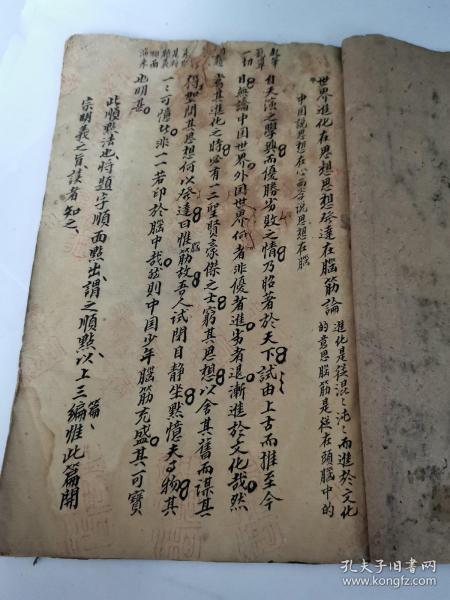 世界進化在思想思想發達在腦筋論
進化是從混々沌々而進於文化
的意思腦筋是從在頭腦中的
中国說思想在心西台說思想在腦
自天演之學興而優勝劣敗之情乃昭著於天下試由上古而推至今
日無論中国世界外国世界何者非優者進劣者退漸進於文化哉然
當其進化之時必有一二聖賢豪傑之士窮其思想以舍其舊而謀其
得聖聞其思想何以發達曰惟筋故吾人試閉目静坐點憶天々物其
一々可憶者非一一若印於腦中哉然則中国少年腦筋充盛其可寶
也明甚
起筆
一切
此順點法也將題字順面點出謂之順點以上三編惟此篇開
篇
宗明義之旨讀者知之
孔夫子旧书网
www.kongfz.com